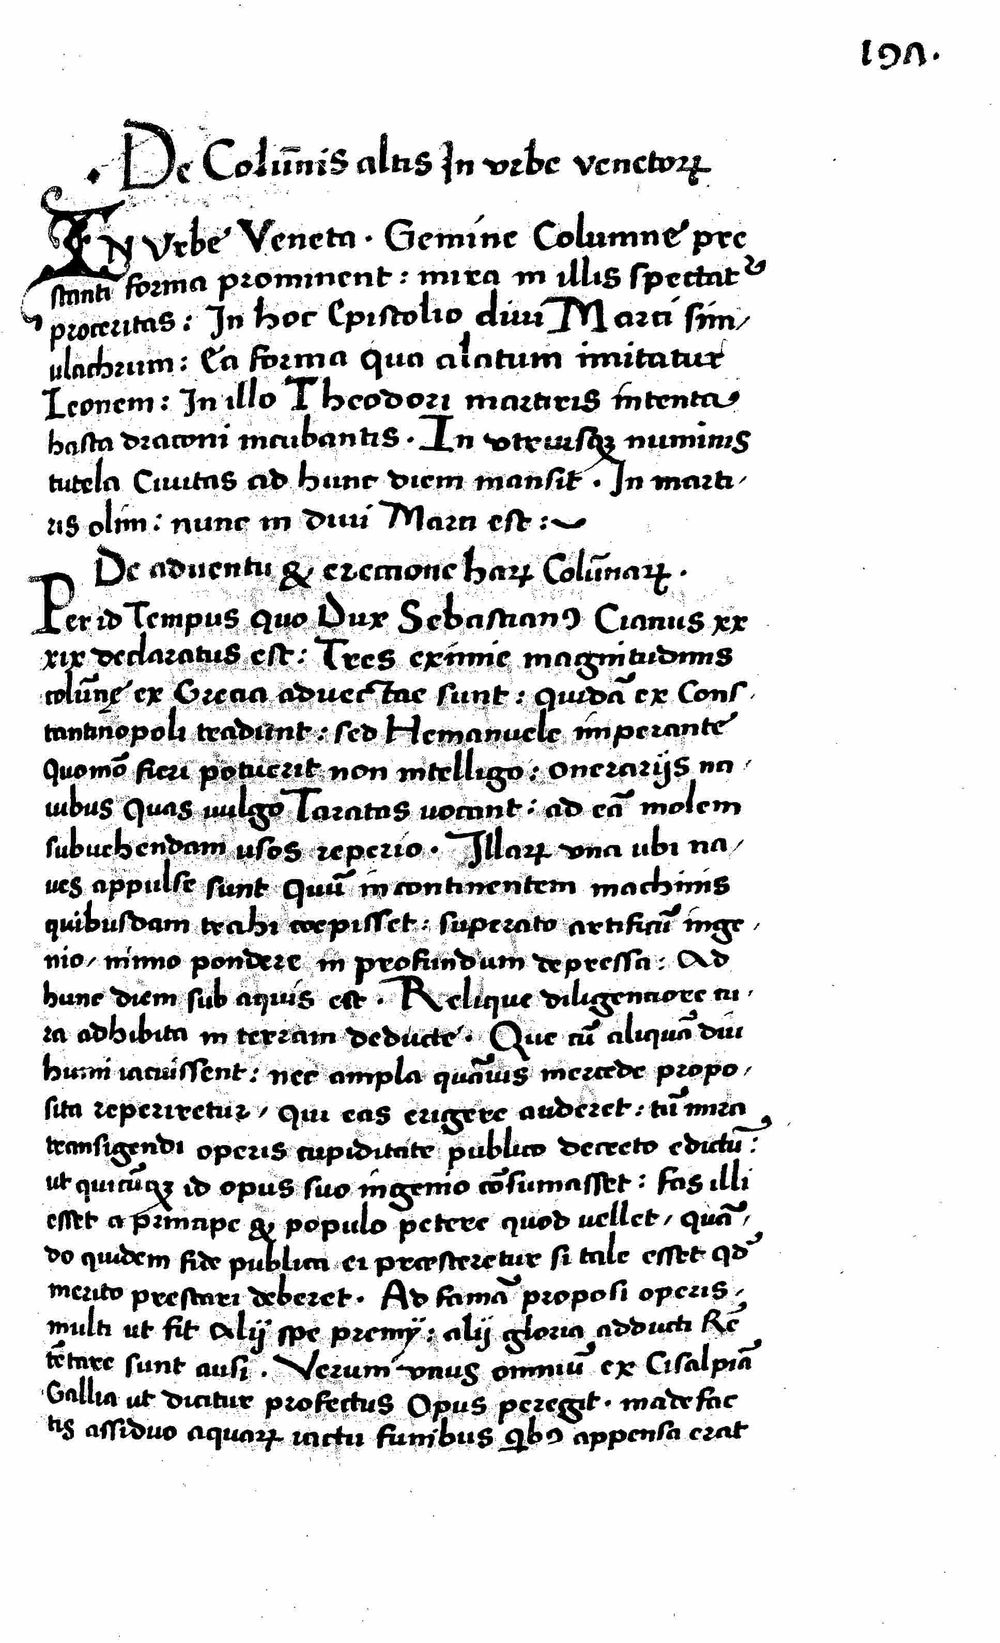 197.
De Colūnis altis In vrbe venetoꝝ
IN Vrbe Veneta. Gemine Columne pre
stanti forma prominent: mira in illis spectat᷑
proceritas: In hoc Epistolio diui Marci sim/
ulachrum: Ea forma qua alatum imitatur
Leonem: In illo Theodori martiris intenta
hasta draconi incubantis. In vtriusqꝫ numinis
tutela Ciuitas ad hunc diem mansit. In marti/
ris olim: nunc in diui Marci est:~
De aduentu & erectione haꝝ Colūnaꝝ.
Per id Tempus quo Dux Sebastianꝰ Cianus xx
xix declaratus est: Tres eximie magnitudinis
colūnę ex Grecia aduectae sunt: quidā ex Cons/
tantinopoli tradunt: sed Hemanuele imperante
Quomō fieri potuerit non intelligo: onerarijs na/
uibus Quas uulgo Taratas uocant: ad eā molem
subuehendam usos reperio. Illaꝝ vna ubi na/
ues appulse sunt Quū in continentem machinis
quibusdam trahi coepisset: superato artificū inge/
nio/ nimio pondere in profundum depressa: Ad
hunc diem sub aquis est. Relique diligentiore cu/
ra adhibita in terram deducte. Que cū aliquā diu
humi iacuissent: nec ampla quāuis mercede propo/
sita reperiretur/ qui eas erigere auderet: tū mira
transigendi operis cupiditate publico decreto edictū:
ut quicūqꝫ id opus suo ingenio cōsumasset: fas illi
esset a principe & populo petere quod uellet/ quā/
do quidem fide publica ei præsteretur si tale esset qd̄
merito prestari deberet. Ad famā proposi operis/
multi ut fit Alij spe premij: alij gloria adducti Rē
tētare sunt ausi. Verum vnus omniū ex Cisalpiā
Gallia ut dicitur profectus Opus peregit. madefac
tis assiduo aquaꝝ iactu funibus qbꝰ appensa erat